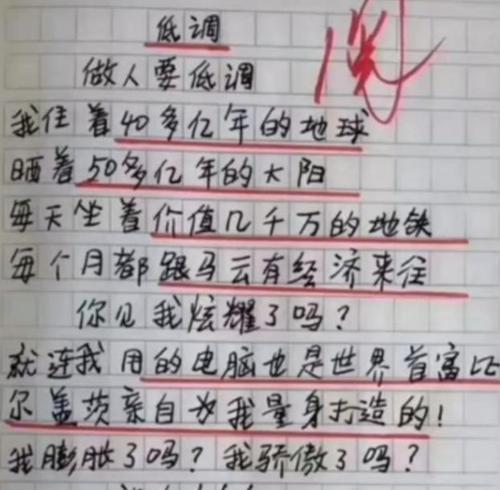 低调
做人要低调
我住着40多亿年的地球
晒着50多亿年的太阳
每天坐着价值几千万的地铁
每个月都跟马云有经济来往
你见我炫耀了吗？
就连我用的电脑也是世界首富比
尔盖茨亲自为我量身打造的！
我膨胀了吗？我骄傲了吗？